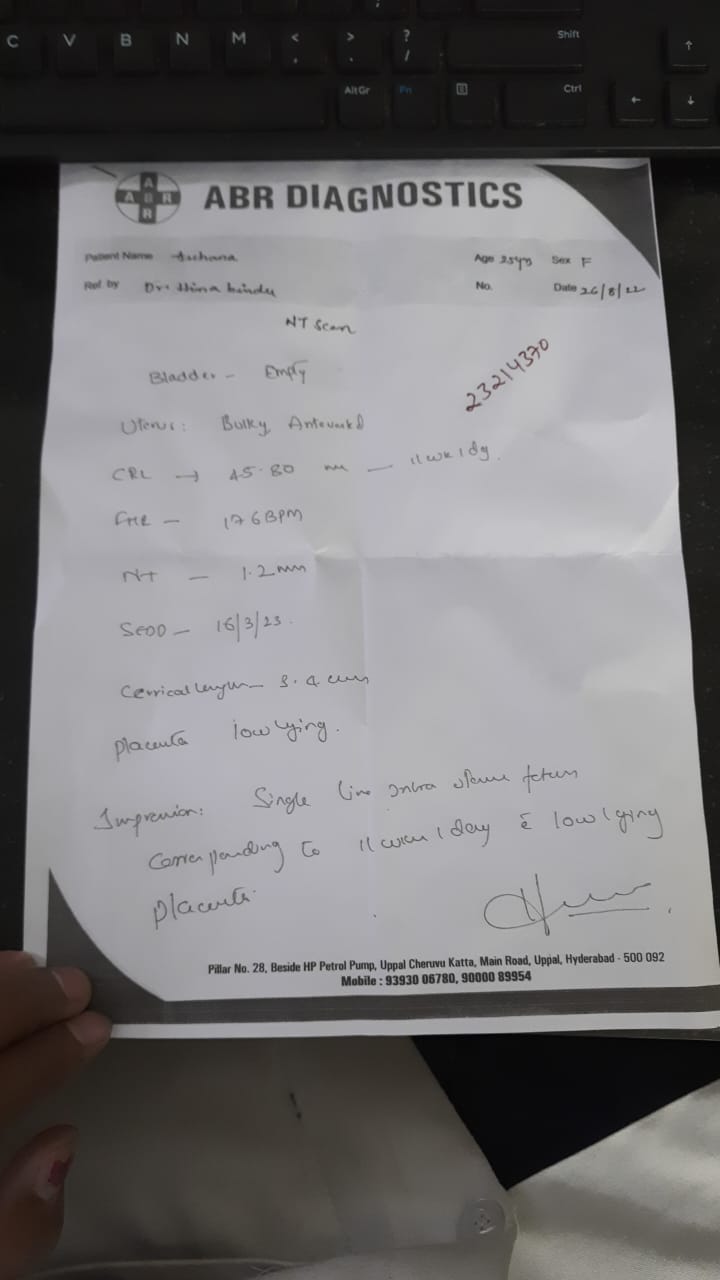 C V B N M < , > . ? / Shift ↑
AltGr Fn Ctrl ← ↓
A B R A R
ABR DIAGNOSTICS
Patient Name Archana Age 25yrs Sex F
Ref. by Dr. Hima bindu No. Date 26/8/22
NT Scan
23214370
Bladder - Empty
Uterus: Bulky, Anteverted
CRL → 45.80 mm - 11wk1dy.
FHR - 176BPM
NT - 1.2mm
SEDD - 16/3/23.
Cervical length - 3.4 cms
placenta low lying.
Impression: Single live Intra uterine fetus
corresponding to 11week 1day c̄ low lying
placenta.
Pillar No. 28, Beside HP Petrol Pump, Uppal Cheruvu Katta, Main Road, Uppal, Hyderabad - 500 092
Mobile : 93930 06780, 90000 89954